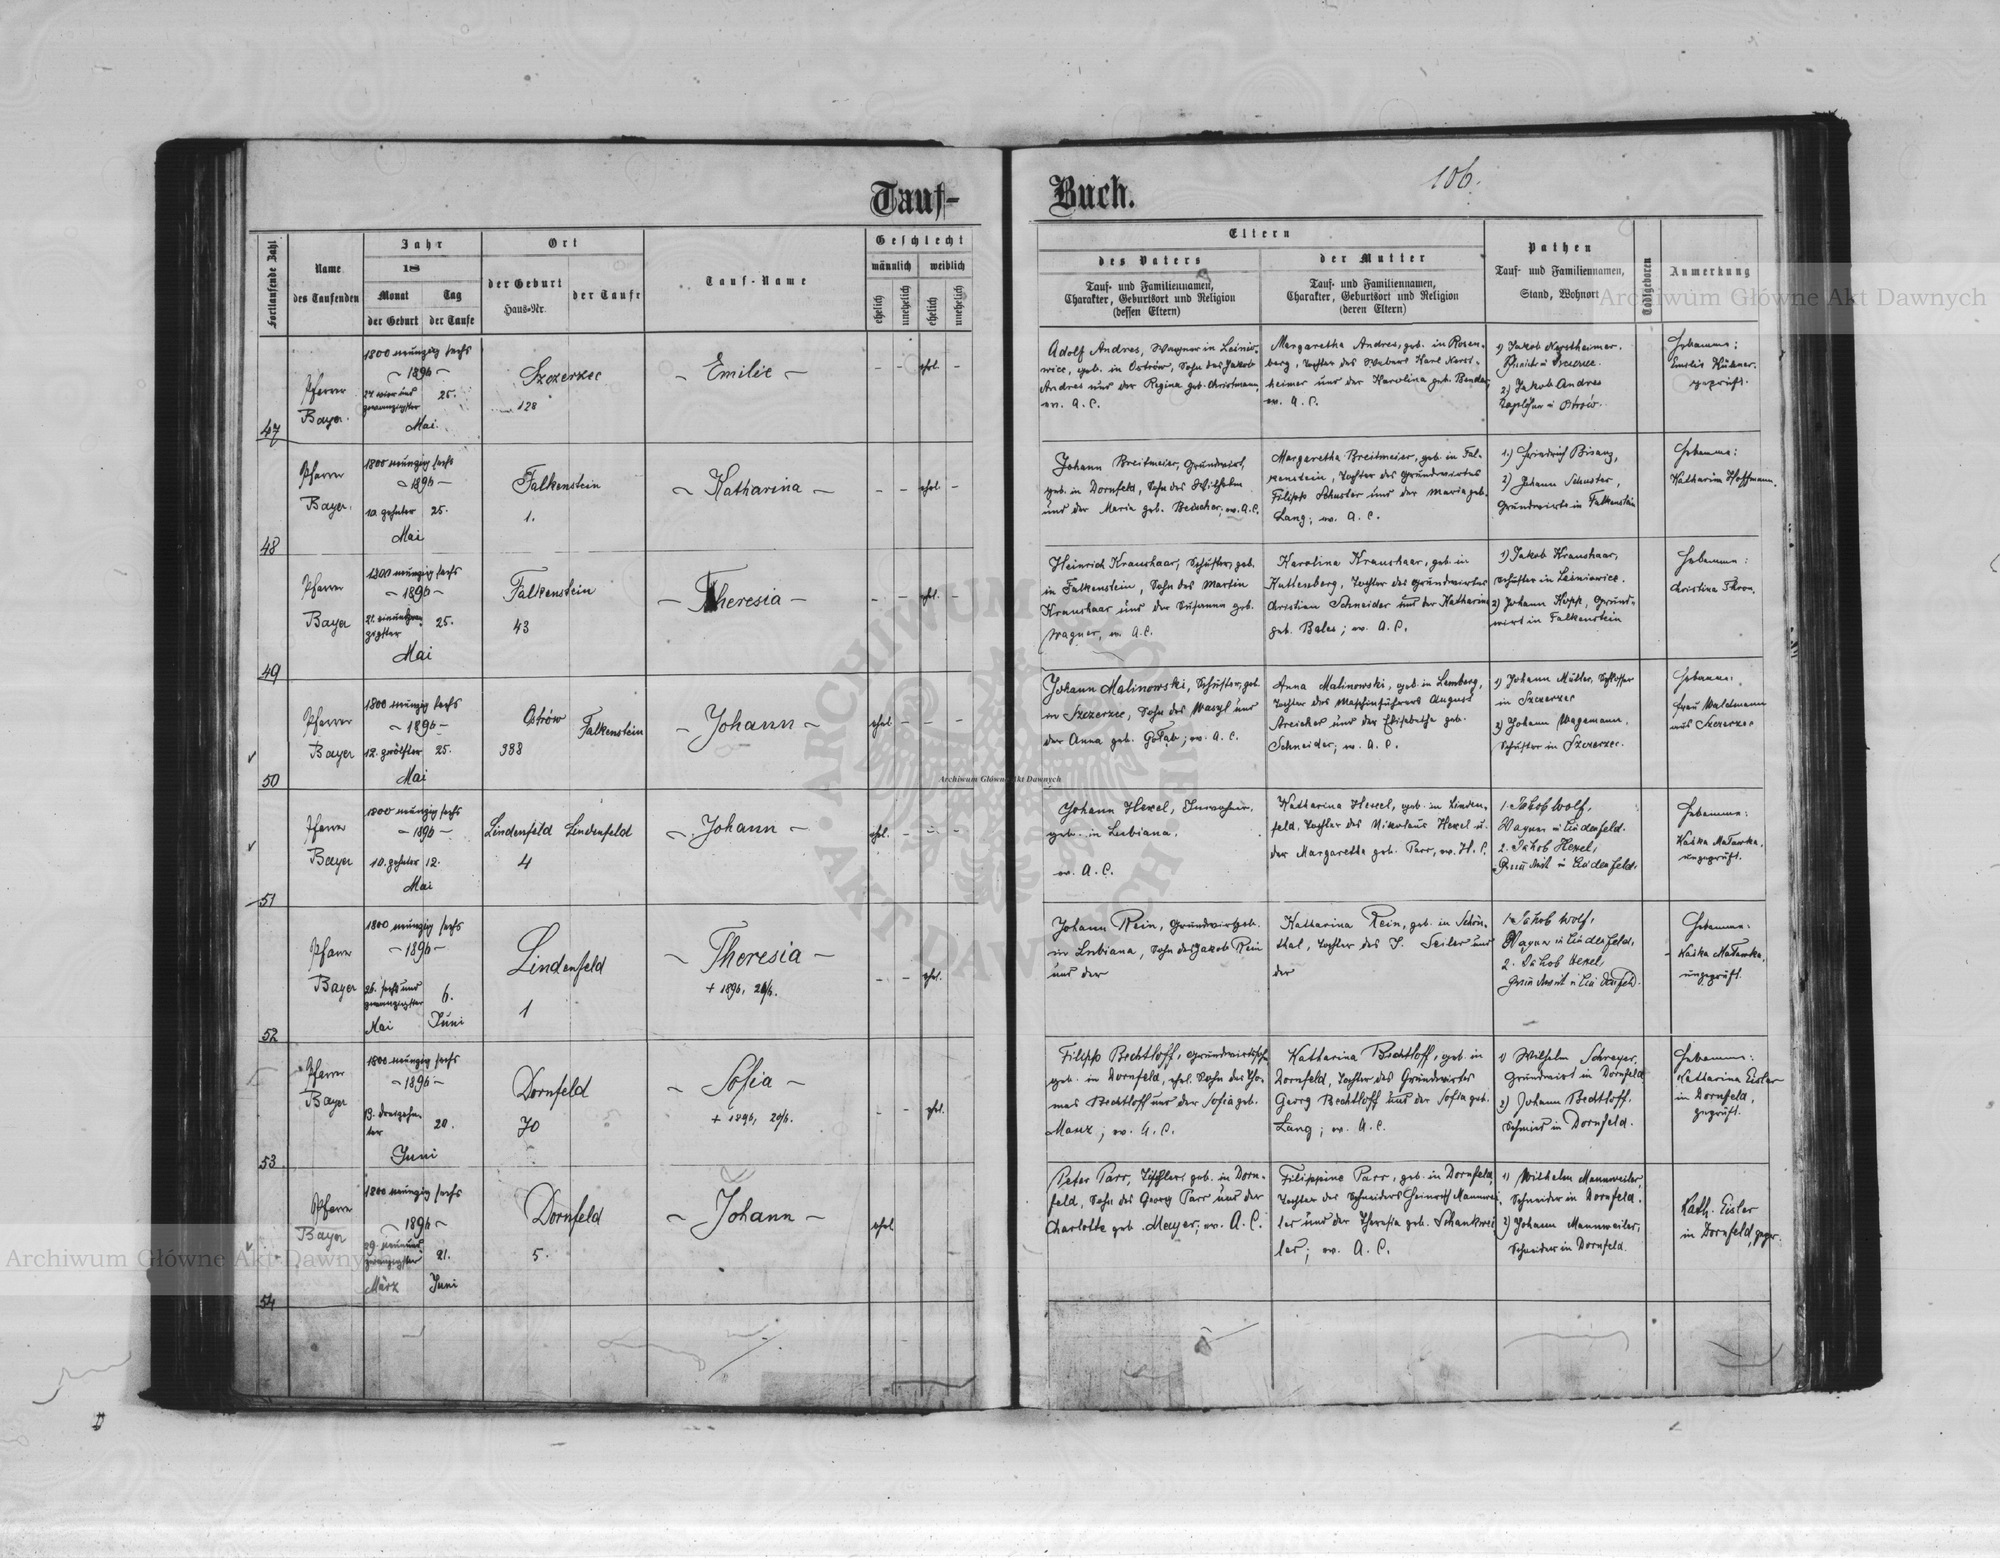 Tauf-
Buch.
106.
Fortlaufende Zahl
Name
des Taufenden
Jahr
18
Monat
Tag
der Geburt
der Taufe
Ort
der Geburt
Haus-Nr.
der Taufe
Tauf-Name
Geschlecht
männlich
weiblich
ehelich
unehelich
ehelich
unehelich
Eltern
des Vaters
Tauf- und Familiennamen,
Charakter, Geburtsort und Religion
(dessen Eltern)
der Mutter
Tauf- und Familiennamen,
Charakter, Geburtsort und Religion
(deren Eltern)
Pathen
Tauf- und Familiennamen,
Stand, Wohnort
Todtgeboren
Anmerkung
47
Pfarrer
Bayer.
1800 neunzig sechs
– 1896 –
25.
Mai
Szczerzec
128
– Emilie –
ehel.
Adolf Andres, Wagner in
geb. in Ostrów, Sohn des Jakob
Andres und der Regina geb. Christmann,
ev. A. C.
Margaretha Andres, geb. in Rosen-
berg, Tochter des Karl
heimer und der Karolina geb. Bender,
ev. A. C.
1) Jakob
2) Jakob Andres
Taglöhner in Ostrów.
Hebamme:
Emilie
geprüft.
48
Pfarrer
Bayer.
1800 neunzig sechs
– 1896 –
10. zehnter 25.
Mai
Falkenstein
1.
– Katharina –
ehel.
Johann Breitmeier, Grundwirt,
geb. in Dornfeld, Sohn des Wilhelm
und der Maria geb. ev. A. C.
Margaretha Breitmeier, geb. in Fal-
kenstein, Tochter des Grundwirtes
Filipp Schuster und der Maria geb.
Lang; ev. A. C.
1.) Friedrich Bisanz,
2) Johann Schuster,
Grundwirte in Falkenstein
Hebamme:
Katharina Hoffmann.
49
Pfarrer
Bayer
1800 neunzig sechs
– 1896 –
21. einundzwan-
zigster 25.
Mai
Falkenstein
43
– Theresia –
ehel.
Heinrich Kraushaar, Schuster, geb.
in Falkenstein, Sohn des Martin
Kraushaar und der Susanna geb.
Wagner, ev. A. C.
Karolina Kraushaar, geb. in
Kuttenberg, Tochter des Grundwirtes
Christian Schneider und der Katharina
geb. Bales; ev. A. C.
1) Jakob Kraushaar,
Schuster in Lesniowice.
2) Johann Kopp, Grund-
wirt in Falkenstein
Hebamme:
Christina Thron.
50
Pfarrer
Bayer
1800 neunzig sechs
– 1896 –
12. zwölfter 25.
Mai
Ostrów
388
Falkenstein
– Johann –
ehel.
Johann Malinowski, Schuster, geb.
in Szczerzec, Sohn des Wasyl und
der Anna geb. Gołąb; ev. A. C.
Anna Malinowski, geb. in Lemberg,
Tochter des Maschinführers August
Streicher und der Elisabetha geb.
Schneider; ev. A. C.
1) Johann Müller, Schlosser
in Szczerzec
2) Johann Wagemann,
Schuster in Szczerzec.
Hebamme:
Frau Waldmann
aus Szczerzec
51
Pfarrer
Bayer
1800 neunzig sechs
– 1896 –
10. zehnter 12.
Mai
Lindenfeld
4
Lindenfeld
– Johann –
ehel.
Johann Hexel, Inwohner,
geb. in Lubiana,
ev. A. C.
Katharina Hexel, geb. in Linden-
feld, Tochter des Nikolaus Hexel u.
der Margaretha geb. Parr, ev. H. C.
1. Jakob Wolf,
Wagner in Lindenfeld.
2. Jakob Hexel,
Grundwirt in Lindenfeld.
Hebamme:
Kaśka Matawka,
ungeprüft.
52
Pfarrer
Bayer
1800 neunzig sechs
– 1896 –
26. sechsund
zwanzigster
Mai
6.
Juni
Lindenfeld
1
– Theresia –
+ 1896,
ehel.
Johann Rein, Grundwirt geb.
in Lubiana, Sohn des Jakob Rein
und der
Katharina Rein, geb. in Schön-
thal, Tochter des J. Seiler und
der
1. Jakob Wolf,
Wagner in Lindenfeld,
2. Jakob Hexel,
Grundwirt in Lindenfeld.
Hebamme:
Kaśka Matawka,
ungeprüft.
53
Pfarrer
Bayer
1800 neunzig sechs
– 1896 –
13. dreizehn-
ter 20.
Juni
Dornfeld
70
– Sofia –
+ 1896, 20/6.
ehel.
Filipp Bechtloff, Grundwirtssohn
geb. in Dornfeld, ehel. Sohn des Tho-
mas Bechtloff und der Sofia geb.
Manz; ev. A. C.
Katharina Bechtloff, geb. in
Dornfeld, Tochter des Grundwirtes
Georg Bechtloff und der Sofia geb.
Lang; ev. A. C.
1) Wilhelm Schreyer,
Grundwirt in Dornfeld
2) Johann Bechtloff.
Schmied in Dornfeld.
Hebamme:
Katharina Eisler
in Dornfeld,
geprüft.
54
Pfarrer
Bayer
1800 neunzig sechs
– 1896 –
29. neunund
zwanzigster
März
21.
Juni
Dornfeld
5.
– Johann –
ehel
Peter Parr, Tischler, geb. in Dorn-
feld, Sohn des Georg Parr und der
Charlotte geb. Mayer, ev. A. C.
Filippine Parr, geb. in Dornfeld,
Tochter des Schneiders Heinrich Mannwei-
ler und der Theresia geb. Schankwei
ler; ev. A. C.
1) Wilhelm Mannweiler,
Schneider in Dornfeld.
2) Johann Mannweiler,
Schneider in Dornfeld.
Kath. Eisler
in Dornfeld, gepr.
Archiwum Główne Akt Dawnych
Archiwum Główne Akt Dawnych
Archiwum Główne Akt Dawnych
ARCHIWUM GŁÓWNE AKT DAWNYCH